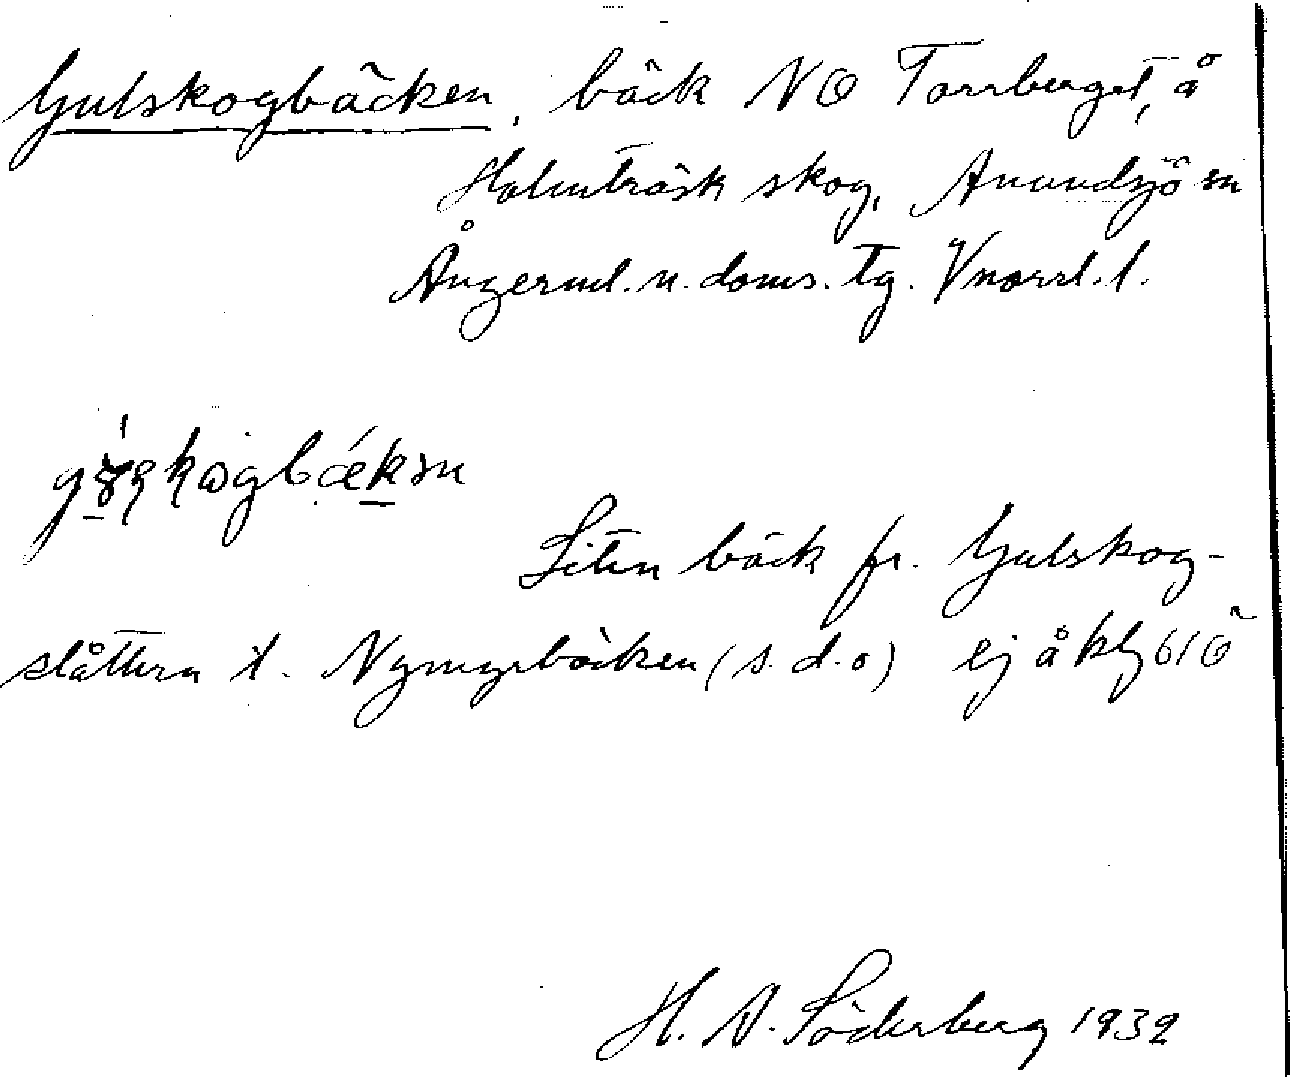 Gulskogbäcken, bäck NO Torrberget, å
Holmträsk skog, Anundsjö sn
Ångerml. n. doms. tg. Vnorrl. l.
Liten bäck fr. Gulskog-
slåttern t. Nymyrbäcken (s. d. o) ej å kbl 61Ö
H. A. Söderberg 1932